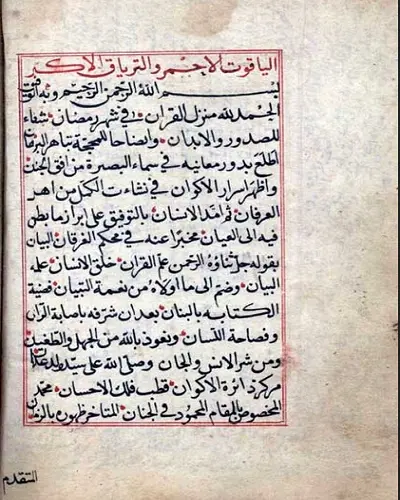 الياقوت الاحمر والترياق الاكبر
بسم الله الرحمن الرحيم وبه التوفيق
الحمد لله منزل القران في شهر رمضان شفاء
للصدور والابدان وايضاحا للمحجة تباهر البرهان
اطلع بدور معانيه في سماء البصيرة من افق الجنان
واظهر اسرار الاكوان في نشاءت الكل من اهل
العرفان ثم امد الانسان بالتوفيق على ابراز ما بطن
فيه الى العيان مخبرا عنه في محكم الفرقان البيان
بقوله جل ثناؤه الرحمن علم القران خلق الانسان علمه
البيان وضم الى ما اولاه من نعمة التبيان قضية
الكتابه بالبنان بعد ان شرفه باصابة القران
وفصاحة اللسان ونعوذ بالله من الجهل والطغيان
ومن شر الانس والجان وصلى الله على سيد ولد عدنان
مركز دائرة الاكوان قطب فلك الاحسان محمد
المخصوص بالمقام المحمود في الجنان المتاخر ظهوره بالزمان
المتقدم